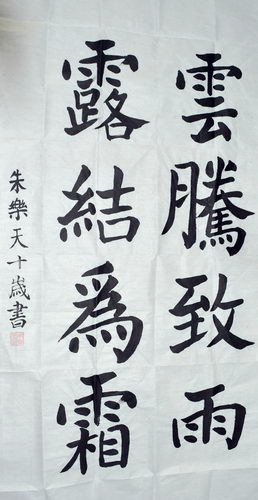 雲騰致雨
露結為霜
朱樂天十歲書